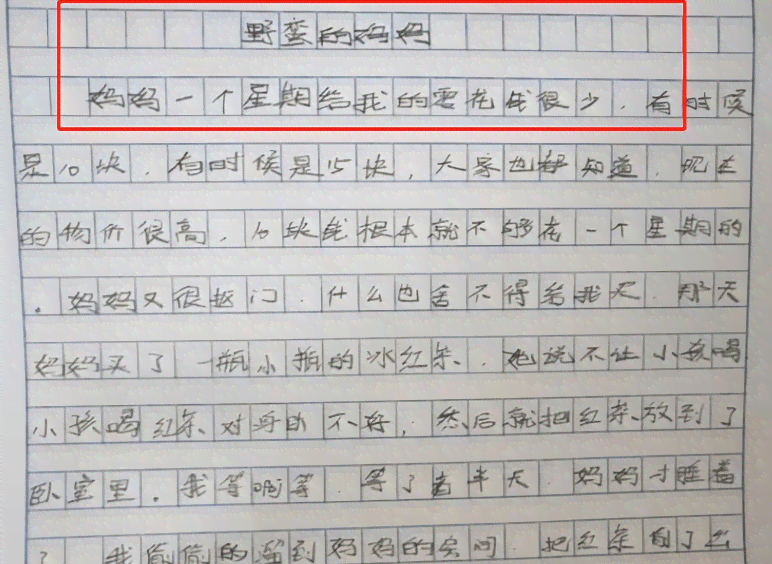 野蛮的妈妈
妈妈一个星期给我的零花钱很少.有时候
是10块.有时候是15块,大家也都知道.现在
的物价很高.10块钱根本就不够花一个星期的
.妈妈又很抠门.什么也舍不得给我买.那天
妈妈买了一瓶小瓶的冰红茶.她说不让小孩喝
小孩喝红茶、对身体不好,然后就把红茶放到了
卧室里.我等啊等.等了半天.妈妈才睡着
了.我偷偷的溜到妈妈的房间.把红茶